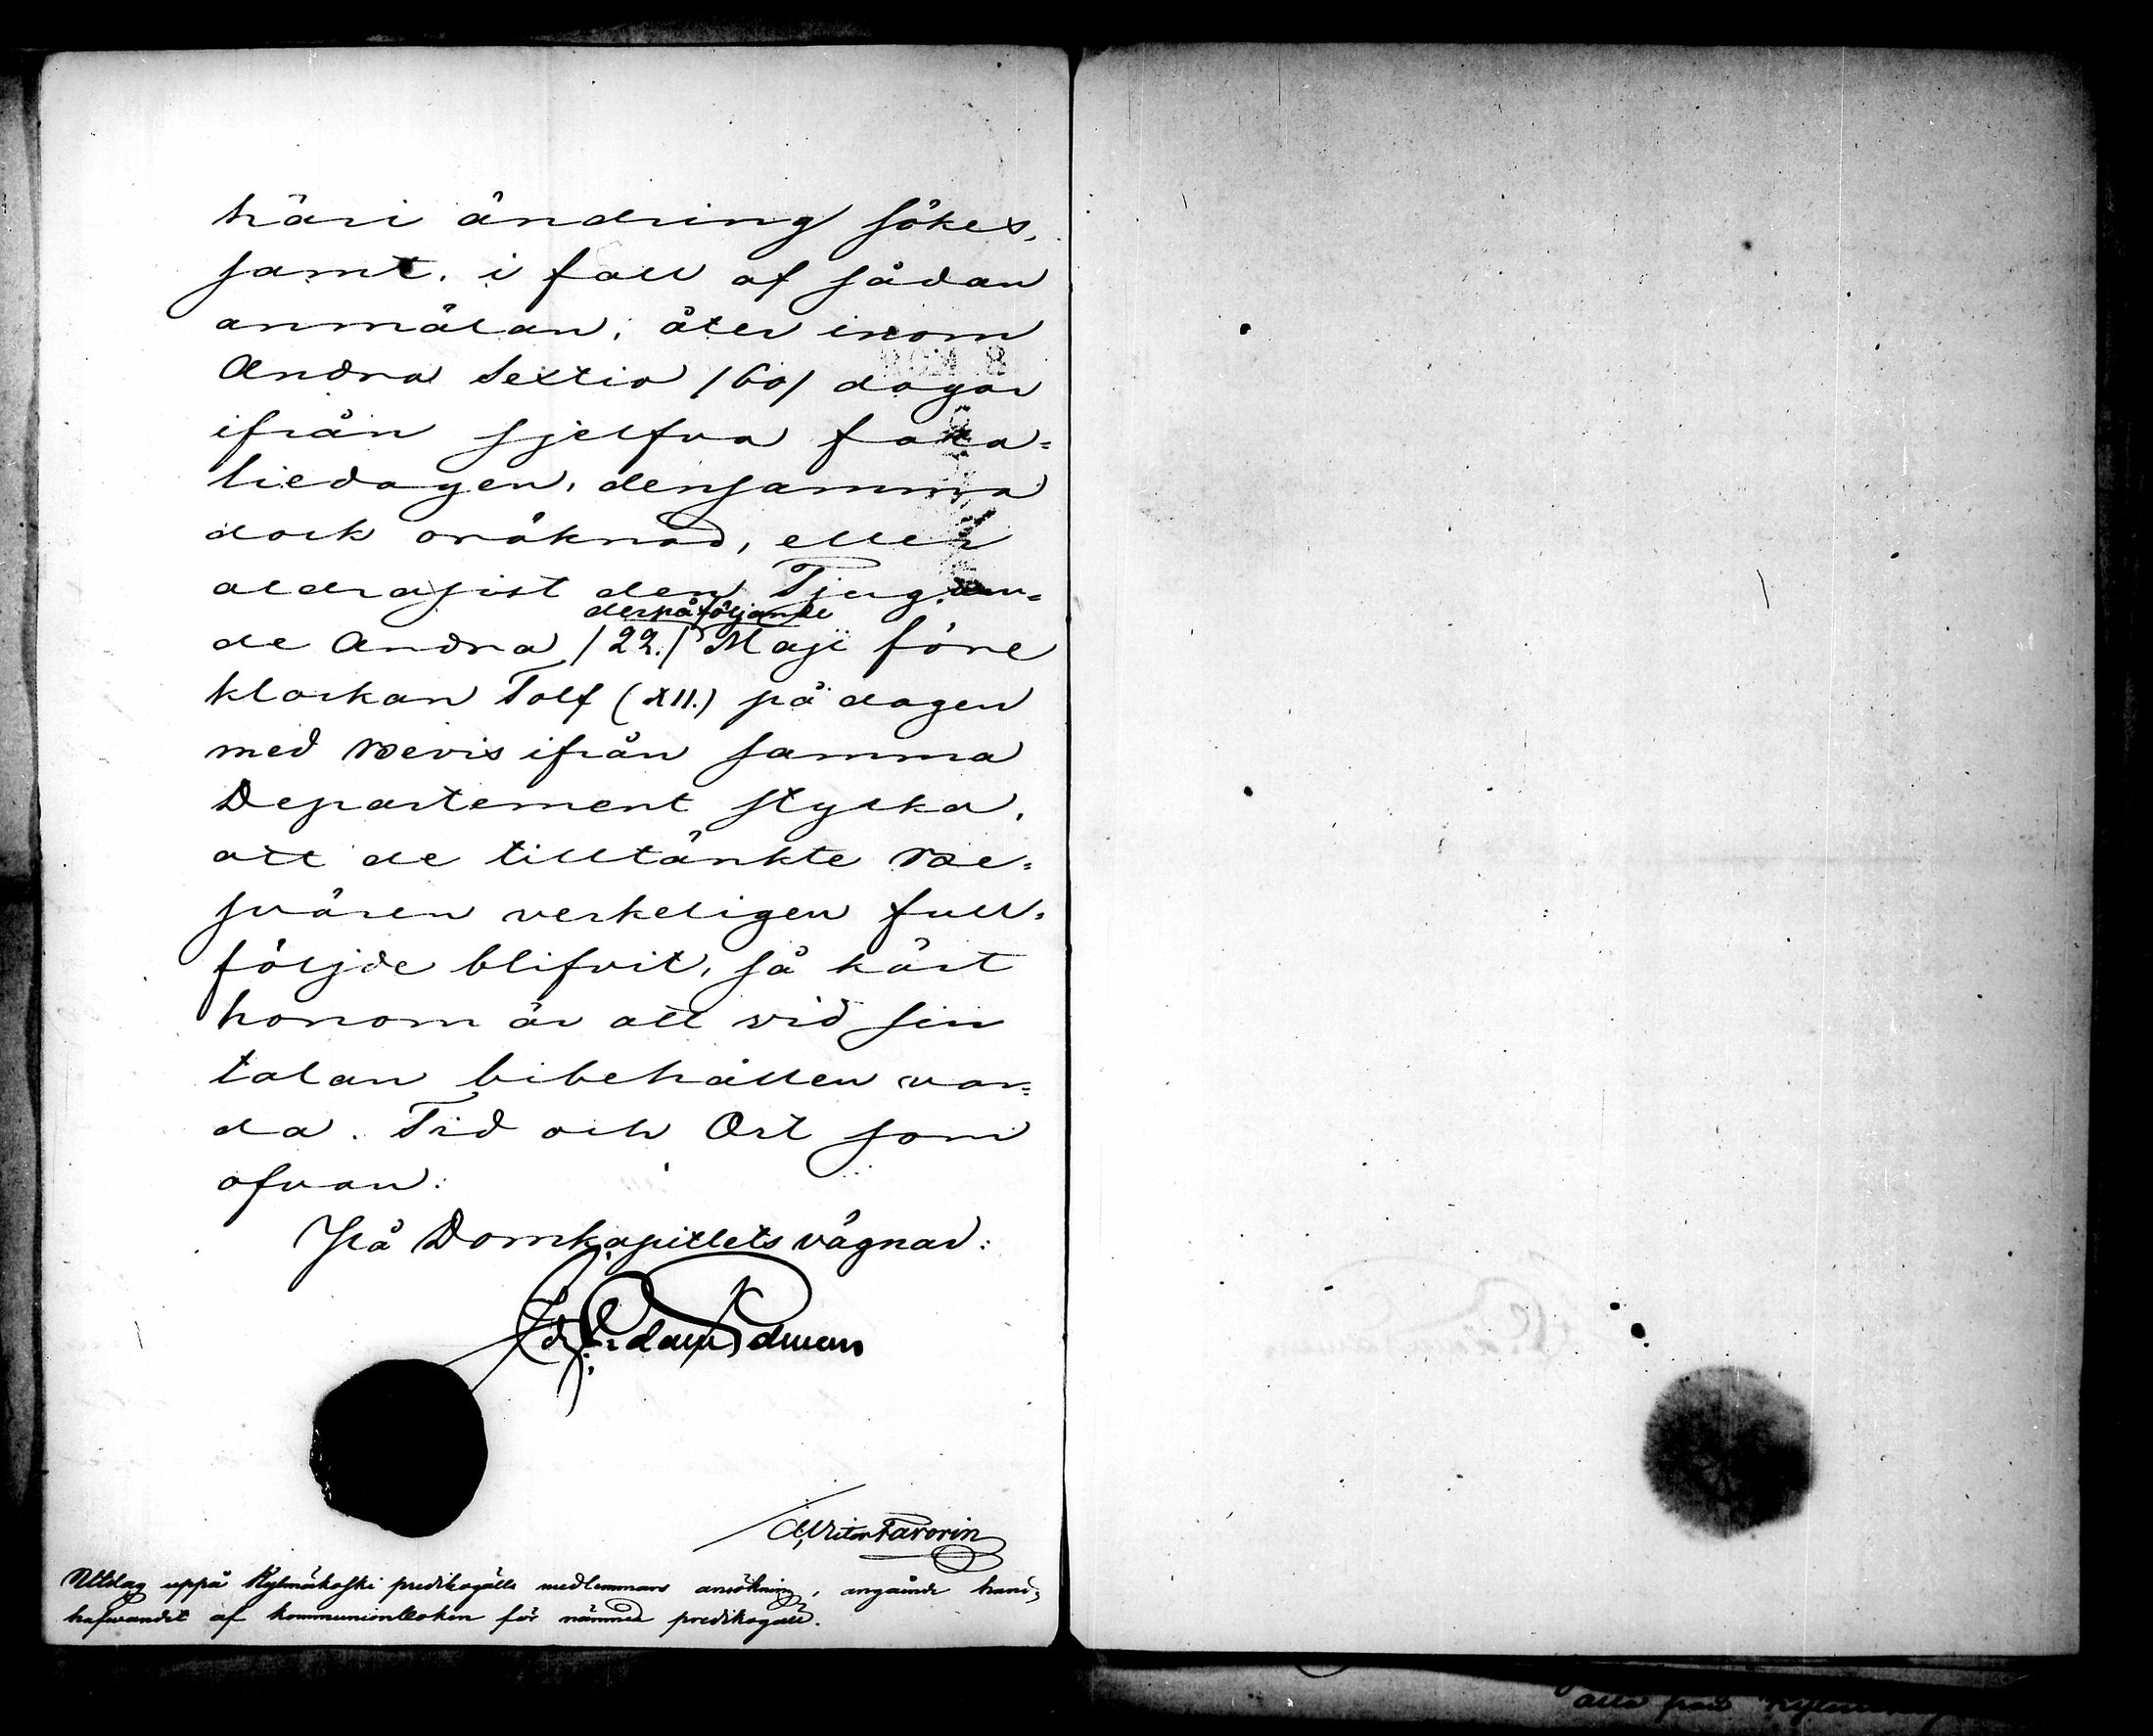 häri ändring sökes,
samt, i fall af sådan
anmälan, åter inom
Andra Sextio /60/ dagar
ifrån sjelfva fata=
liedagen, densamma
dock oräknad, eller
aldrasist den Tjugon=
derpåföljande
de Andra /22./ Maji före
klockan Tolf (XII.) på dagen
med bevis ifrån samma
Departement styrka,
att de tilltänkte be=
svären verkeligen full=
följde blifvit, så kärt
honom är att vid sin
talan bibehållen var=
da. Tid och Ort som
ofvan:
På Domkapitlets vägnar:
Viktor Favorin
Utslag uppå Kylmäkoski predikogälls medlemmars ansökning, angående hand=
hafvandet af kommunionboken för nämnda predikogäll.
alla från